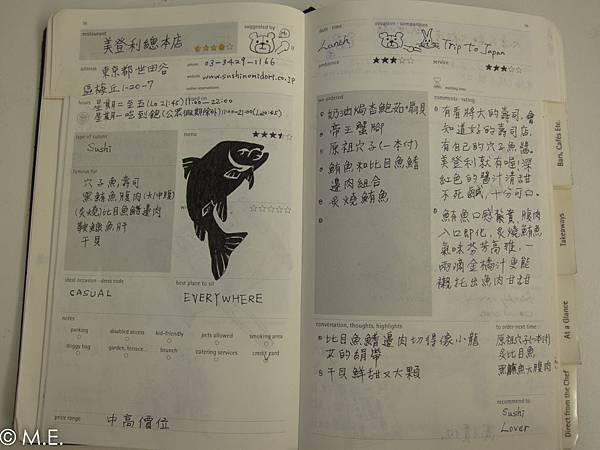 restaurant
suggested by
美登利總本店
address
phone
03-3429-1166
東京都世田谷
website
www.sushinomidori.co.jp
區梅丘1-20-7
online reservations
hours
星期二至五(Lo 21:45) 11:00-22:00
星期一吃到飽(公眾假期除外)11:00-21:00(Lo20:45)
type of cuisine
menu
Sushi
famous for
穴子魚壽司
黑鮪魚腹肉(大/中腹)
(炙燒)比目魚鰭邊肉
鮟鱇魚肝
干貝
ideal occasion - dress code
best place to sit
CASUAL
EVERYWHERE
notes
parking
disabled access
kid-friendly
pets allowed
smoking area
doggy bag
garden, terrace...
brunch
catering services
credit card
price range
中高價位
date - time
occasion - companions
Lunch
Trip to Japan
ambience
service
waiting time
we ordered
奶油焗杏鮑菇+扇貝
帝王蟹腳
原祖穴子(一本付)
鮪魚和比目魚鰭
邊肉組合
炙燒鮪魚
comments - rating
有者將大的壽司,會
知道好的壽司店,
有自己的穴子魚醬。
美登利就有喔!深
紅色的醬汁清甜
不死鹹,十分可口。
鮪魚口感紮實,腹肉
入口即化,炙燒鮪魚
氣味芬芳高雅,一
兩滴金橘汁更能
襯托出魚肉甘甜
conversation, thoughts, highlights
to order next time
比目魚鰭邊肉切得像小龍
女的絹帶
干貝鮮甜又大顆
原祖穴子(一本付)
炙比目魚
黑鮪魚大腹肉
recommend to
Sushi
Lover
Bars, Cafés Etc.
Takeaways
At a Glance
Direct from the Chef
© M.E.